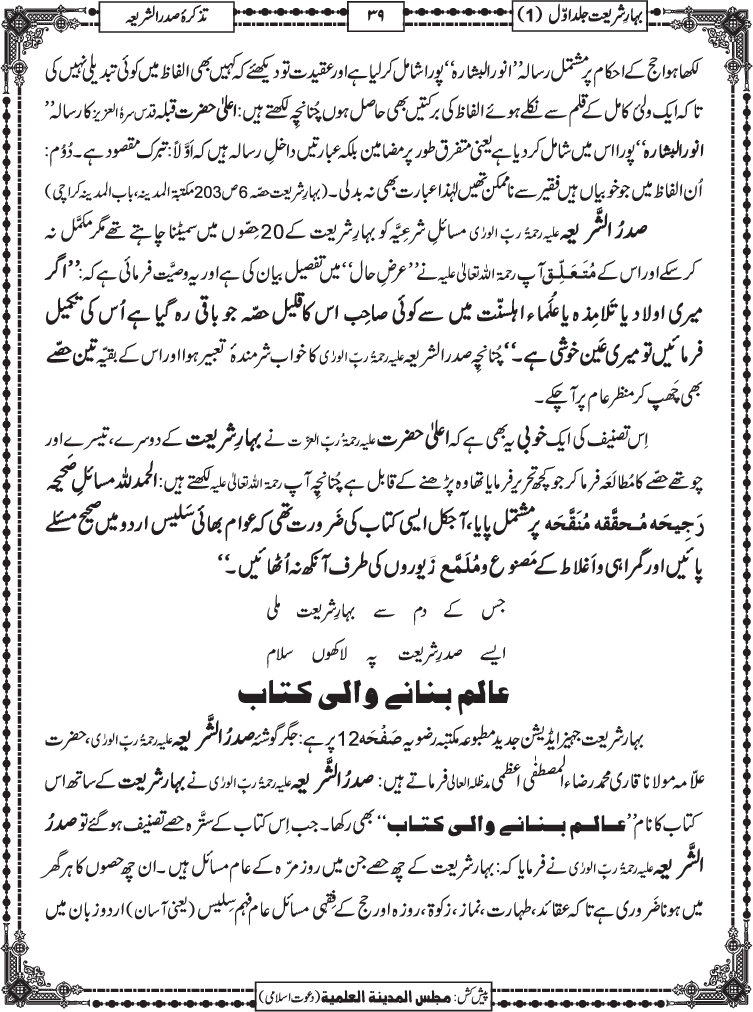 بہارِ شریعت جلد اوّل (1)
۳۹
تذکرۂ صدر الشریعہ
لکھا ہوا حج کے احکام پر مشتمل رسالہ ”انور البشارہ“ پورا شامل کر لیا ہے اور عقیدت تو دیکھئے کہ کہیں بھی الفاظ میں کوئی تبدیلی نہیں کی
تا کہ ایک ولیٔ کامل کے قلم سے نکلے ہوئے الفاظ کی برکتیں بھی حاصل ہوں چُنانچِہ لکھتے ہیں: اعلیٰ حضرت قبلہ قدس سرہٗ العزیز کا رسالہ ”
انور البشارہ“ پورا اس میں شامل کر دیا ہے یعنی متفرق طور پر مضامین بلکہ عبارتیں داخلِ رسالہ ہیں کہ اَوَّلاً: تبرک مقصود ہے۔ دُوُم:
اُن الفاظ میں جو خوبیاں ہیں فقیر سے ناممکن تھیں لہٰذا عبارت بھی نہ بدلی۔ (بہارِ شریعت حصّہ 6 ص 203 مکتبۃ المدینہ، باب المدینہ کراچی)
صدرُ الشَّریعہ علیہ رحمۃُ ربِّ الورٰی مسائلِ شرعِیَّہ کو بہارِ شریعت کے 20 حِصّوں میں سمیٹنا چاہتے تھے مگر مکمَّل نہ
کر سکے اور اس کے مُتَعَلِّق آپ رحمۃ اللہ تعالیٰ علیہ نے ”عرضِ حال“ میں تفصیل بیان کی ہے اور یہ وصیَّت فرمائی ہے کہ: ”اگر
میری اولاد یا تَلامِذہ یا عُلَماء اہلسنّت میں سے کوئی صاحِب اس کا قلیل حصّہ جو باقی رہ گیا ہے اُس کی تکمیل
فرمائیں تو میری عَین خوشی ہے۔“ چُنانچِہ صدر الشریعہ علیہ رحمۃُ ربِّ الورٰی کا خواب شرمندۂ تعبیر ہوا اور اس کے بقیّہ تین حصّے
بھی چَھپ کر منظرِ عام پر آچکے۔
اِس تصنیف کی ایک خوبی یہ بھی ہے کہ اعلیٰ حضرت علیہ رحمۃُ ربِّ العزّت نے بہارِ شریعت کے دوسرے، تیسرے اور
چوتھے حصّے کا مُطالَعَہ فرما کر جو کچھ تحریر فرمایا تھا وہ پڑھنے کے قابل ہے چُنانچِہ آپ رحمۃ اللہ تعالیٰ علیہ لکھتے ہیں: الحمد للّٰہ مسائلِ صَحِیحَہ
رَجِیحَہ مُحَقَّقَہ مُنَقَّحَہ پر مشتمل پایا، آجکل ایسی کتاب کی ضَرورت تھی کہ عوام بھائی سَلِیس اردو میں صحیح مسئلے
پائیں اور گمراہی و اَغلاط کے مَصنوع و مُلَمَّع زَیوروں کی طرف آنکھ نہ اُٹھائیں۔“
جس کے دم سے بہارِ شریعت ملی
ایسے صدرِ شریعت پہ لاکھوں سلام
عالم بنانے والی کتاب
بہارِ شریعت جہیز ایڈیشن جدید مطبوعہ مکتبہ رضویہ صَفْحَہ 12 پر ہے: جگر گوشۂ صدرُ الشَّریعہ علیہ رحمۃُ ربِّ الورٰی، حضرت
علّامہ مولانا قاری محمد رضاء المصطفٰی اعظمی مدظلہ العالی فرماتے ہیں: صدرُ الشَّریعہ علیہ رحمۃُ ربِّ الورٰی نے بہارِ شریعت کے ساتھ اس
کتاب کا نام ”عالم بنانے والی کتاب“ بھی رکھا۔ جب اِس کتاب کے سترَّہ حصے تصنیف ہو گئے تو صدرُ
الشَّریعہ علیہ رحمۃُ ربِّ الورٰی نے فرمایا کہ: بہارِ شریعت کے چھ حصے جن میں روزمرّہ کے عام مسائل ہیں۔ ان چھ حصوں کا ہر گھر
میں ہونا ضَروری ہے تاکہ عقائد، طہارت، نماز، زکوۃ، روزہ اور حج کے فقہی مسائل عام فہم سِلیس (یعنی آسان) اردو زبان میں
پیش کش: مجلس المدينة العلمية (دعوتِ اسلامی)